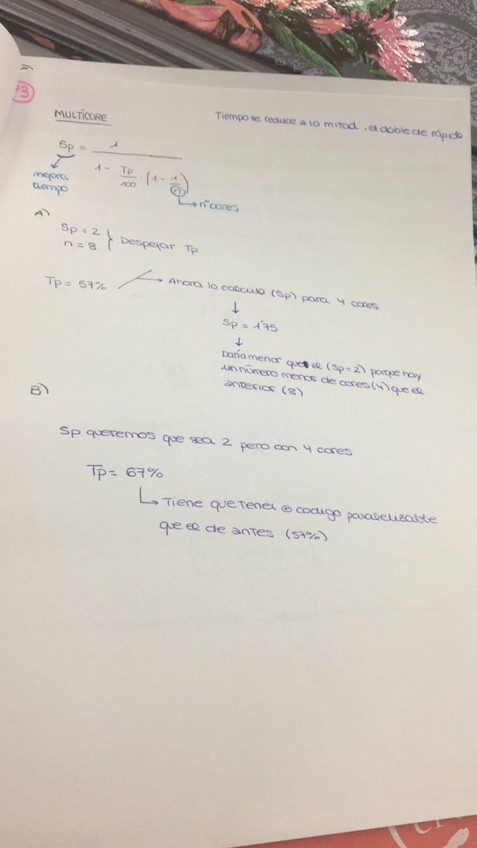 3
MULTICORE
Tiempo se reduce a la mitad, el doble de rápido
Sp = 1 / (1 - Tp/100 · (1 - 1/n))
mejora
tiempo
nº cores
A)
Sp = 2
n = 8 } Despejar Tp
Tp = 57% → Ahora lo calculo (Sp) para 4 cores
↓
Sp = 1'75
↓
Daría menor que el (Sp=2) porque hay
un número menos de cores (4) que el
anterior (8)
B)
Sp queremos que sea 2 pero con 4 cores
Tp = 67%
↳ Tiene que tener ⊕ codigo paralelizable
que el de antes (57%)